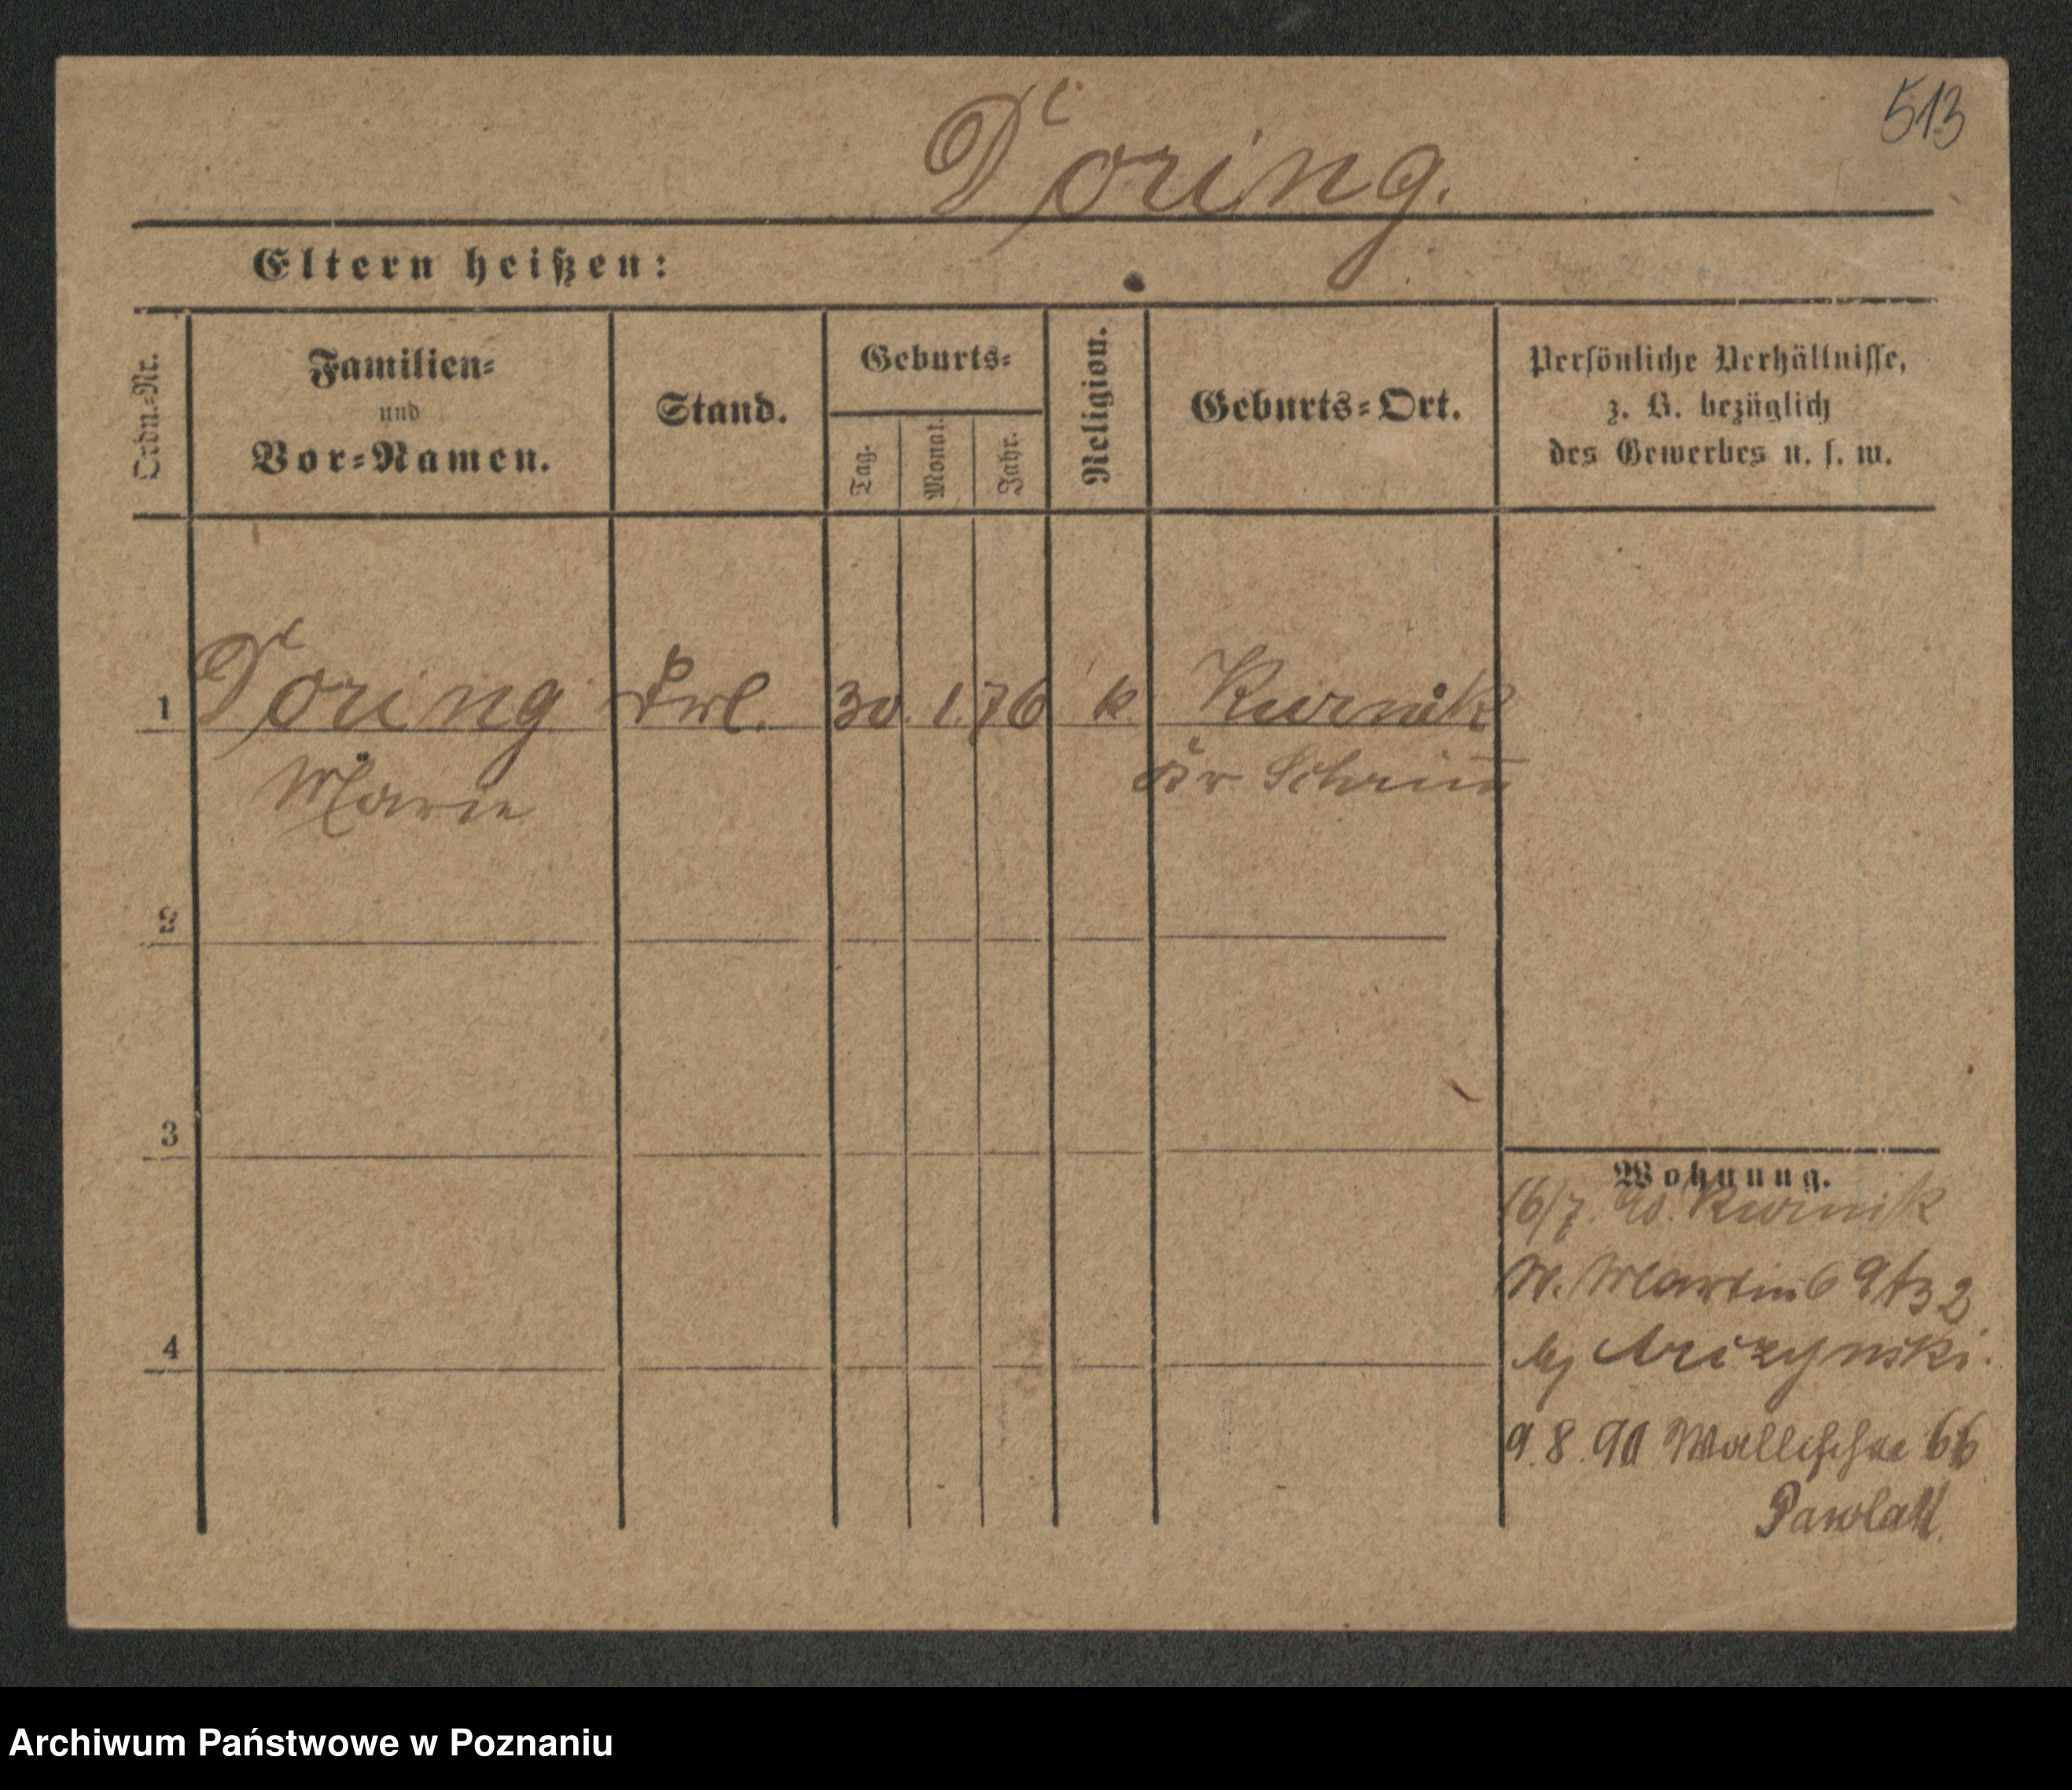 513
Döring.
Eltern heißen:
Ordn.-Nr.
Familien-
und
Vor-Namen.
Stand.
Geburts-
Tag.
Monat.
Jahr.
Religion.
Geburts-Ort.
Persönliche Verhältnisse,
z. B. bezüglich
des Gewerbes u. s. w.
1 Döring Frl. 30. 1. 76 k. Kurnik
Marie Kr Schrim̅
2
3
4
Wohnung.
16/7. 90. Kurnik
W. Martin 69
9. 8. 90 Wallischei 66
Pawlak.
Archiwum Państwowe w Poznaniu